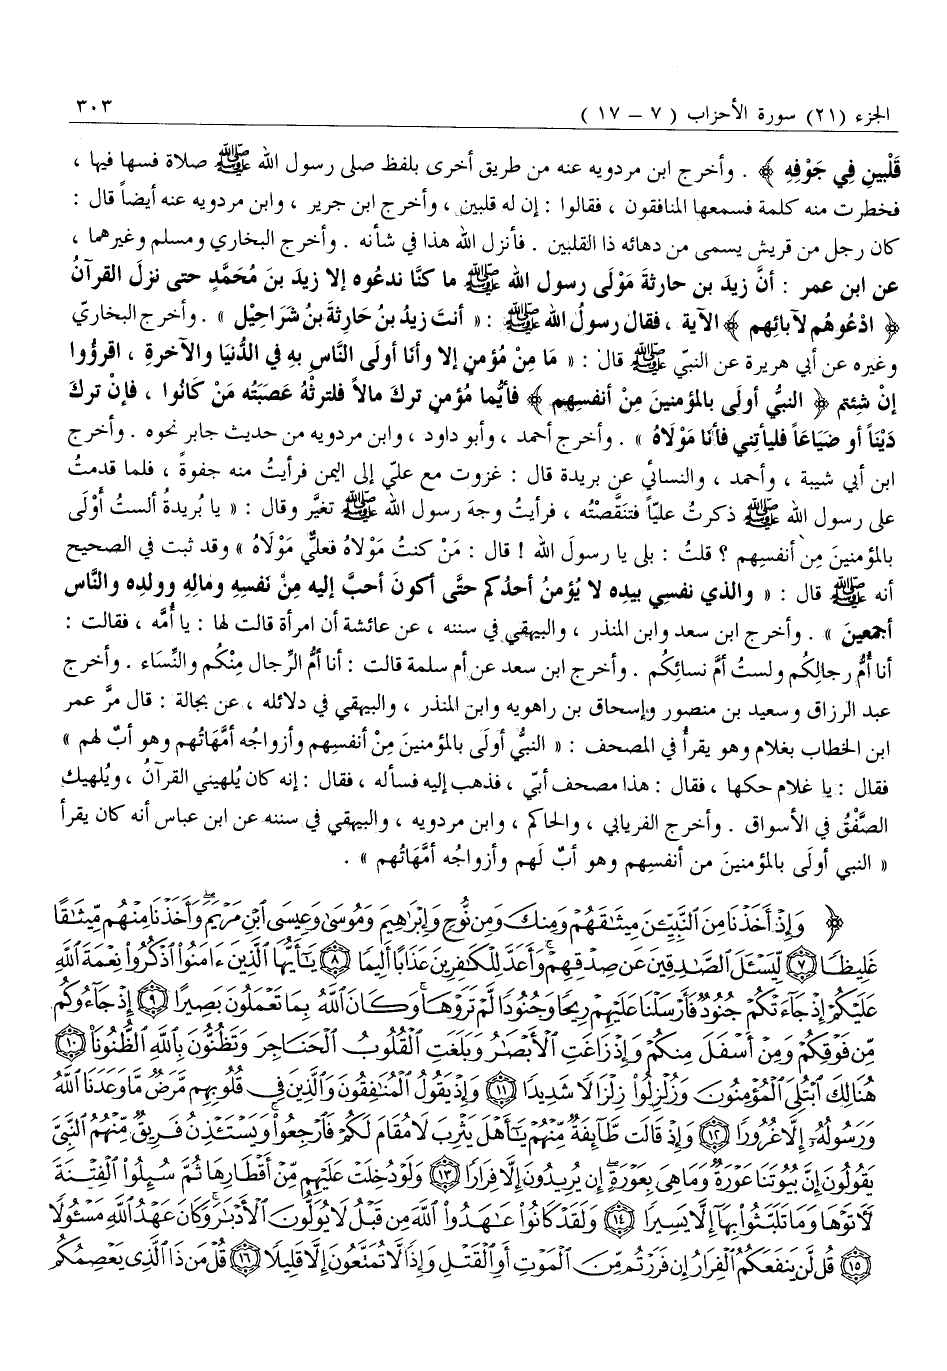 الجزء (٢١) سورة الأحزاب ( ٧ – ١٧ ) ٣٠٣
قَلْبينِ فِي جَوْفِهِ ﴾ . وأخرج ابن مردويه عنه من طريق أخرى بلفظ صلى رسول الله ﷺ صلاة فسها فيها ،
فخطرت منه كلمة فسمعها المنافقون ، فقالوا : إن له قلبين ، وأخرج ابن جرير ، وابن مردويه عنه أيضاً قال :
كان رجل من قريش يسمى من دهائه ذا القلبين . فأنزل الله هذا في شأنه . وأخرج البخاري ومسلم وغيرهما ،
عن ابن عمر : أنَّ زيدَ بن حارثةَ مَوْلَى رسول الله ﷺ ما كنَّا ندعُوه إلا زيدَ بنَ مُحَمَّدٍ حتى نزلَ القرآنُ
﴿ ادْعُوهُم لآبائِهِم ﴾ الآية ، فقال رسولُ الله ﷺ : « أنتَ زيدُ بنُ حَارِثةَ بنُ شَرَاحِيْل » . وأخرج البخاري
وغيره عن أبي هريرة عن النبيّ ﷺ قال : « مَا مِنْ مُؤمنٍ إلا وأنا أولَى النَّاسِ بِهِ في الدُّنيَا والآخرةِ ، اقرؤُوا
إنْ شئتم ﴿ النبيُّ أولَى بالمؤمنينَ مِنْ أنفسِهِم ﴾ فأيُّما مُؤمنٍ تركَ مالاً فلترثْهُ عَصَبَتُه مَنْ كَانُوا ، فإنْ تركَ
دَيْنَاً أو ضَيَاعَاً فليأتِني فأنَا مَوْلَاهُ » . وأخرج أحمد ، وأبو داود ، وابن مردويه من حديث جابر نحوه . وأخرج
ابن أبي شيبة ، وأحمد ، والنسائي عن بريدة قال : غزوت مع عليّ إلى اليمن فرأيتُ منه جفوةً ، فلما قدمتُ
على رسول الله ﷺ ذكرتُ عليّاً فتنقَّصتُه ، فرأيتُ وجهَ رسول الله ﷺ تغيَّر وقال : « يا بُريدةُ ألستُ أَوْلَى
بالمؤمنينَ مِن أنفسهِم ؟ قلتُ : بلى يا رسولَ الله ! قال : مَنْ كنتُ مَوْلاهُ فعليٌّ مَوْلَاهُ » وقد ثبت في الصحيح
أنه ﷺ قال : « والذي نفسِي بيدِه لا يُؤمنُ أحدُكم حتَّى أكونَ أحبَّ إليه مِنْ نفسِهِ ومالِهِ وولدِه والنَّاس
أجمعينَ » . وأخرج ابن سعد وابن المنذر ، والبيهقي في سننه ، عن عائشة أن امرأة قالت لها : يا أُمَّه ، فقالت :
أنا أُمُّ رجالِكُم ولستُ أمَّ نسائِكُم . وأخرج ابن سعد عن أم سلمة قالت : أنا أمُّ الرِّجال مِنْكُم والنِّسَاء . وأخرج
عبد الرزاق وسعيد بن منصور وإسحاق بن راهويه وابن المنذر ، والبيهقي في دلائله ، عن بجالة : قال مرَّ عمر
ابن الخطاب بغلام وهو يقرأُ في المصحف : « النبيُّ أولَى بالمؤمنينَ مِنْ أنفسِهِم وأزواجُه أمَّهَاتُهم وهو أبٌ لهم »
فقال : يا غلام حكها ، فقال : هذا مصحف أبيّ ، فذهب إليه فسأله ، فقال : إنه كان يُلهيني القرآنُ ، ويُلهيك
الصَّفْقُ في الأسواق . وأخرج الفريابي ، والحاكم ، وابن مردويه ، والبيهقي في سننه عن ابن عباس أنه كان يقرأ
« النبي أولَى بالمؤمنينَ من أنفسِهم وهو أبٌ لَهم وأزواجُه أمَّهَاتُهم » .
﴿ وَإِذْ أَخَذْنَا مِنَ النَّبِيِّـۧنَ مِيثَٰقَهُمْ وَمِنكَ وَمِن نُّوحٍ وَإِبْرَٰهِيمَ وَمُوسَىٰ وَعِيسَى ٱبْنِ مَرْيَمَ ۖ وَأَخَذْنَا مِنْهُم مِّيثَٰقًا
غَلِيظًا ﴿٧﴾ لِّيَسْـَٔلَ ٱلصَّٰدِقِينَ عَن صِدْقِهِمْ ۚ وَأَعَدَّ لِلْكَٰفِرِينَ عَذَابًا أَلِيمًا ﴿٨﴾ يَٰٓأَيُّهَا ٱلَّذِينَ ءَامَنُوا۟ ٱذْكُرُوا۟ نِعْمَةَ ٱللَّهِ
عَلَيْكُمْ إِذْ جَآءَتْكُمْ جُنُودٌ فَأَرْسَلْنَا عَلَيْهِمْ رِيحًا وَجُنُودًا لَّمْ تَرَوْهَا ۚ وَكَانَ ٱللَّهُ بِمَا تَعْمَلُونَ بَصِيرًا ﴿٩﴾ إِذْ جَآءُوكُم
مِّن فَوْقِكُمْ وَمِنْ أَسْفَلَ مِنكُمْ وَإِذْ زَاغَتِ ٱلْأَبْصَٰرُ وَبَلَغَتِ ٱلْقُلُوبُ ٱلْحَنَاجِرَ وَتَظُنُّونَ بِٱللَّهِ ٱلظُّنُونَا۠ ﴿١٠﴾
هُنَالِكَ ٱبْتُلِىَ ٱلْمُؤْمِنُونَ وَزُلْزِلُوا۟ زِلْزَالًا شَدِيدًا ﴿١١﴾ وَإِذْ يَقُولُ ٱلْمُنَٰفِقُونَ وَٱلَّذِينَ فِى قُلُوبِهِم مَّرَضٌ مَّا وَعَدَنَا ٱللَّهُ
وَرَسُولُهُۥٓ إِلَّا غُرُورًا ﴿١٢﴾ وَإِذْ قَالَت طَّآئِفَةٌ مِّنْهُمْ يَٰٓأَهْلَ يَثْرِبَ لَا مُقَامَ لَكُمْ فَٱرْجِعُوا۟ ۚ وَيَسْتَـْٔذِنُ فَرِيقٌ مِّنْهُمُ ٱلنَّبِىَّ
يَقُولُونَ إِنَّ بُيُوتَنَا عَوْرَةٌ وَمَا هِىَ بِعَوْرَةٍ ۖ إِن يُرِيدُونَ إِلَّا فِرَارًا ﴿١٣﴾ وَلَوْ دُخِلَتْ عَلَيْهِم مِّنْ أَقْطَارِهَا ثُمَّ سُئِلُوا۟ ٱلْفِتْنَةَ
لَءَاتَوْهَا وَمَا تَلَبَّثُوا۟ بِهَآ إِلَّا يَسِيرًا ﴿١٤﴾ وَلَقَدْ كَانُوا۟ عَٰهَدُوا۟ ٱللَّهَ مِن قَبْلُ لَا يُوَلُّونَ ٱلْأَدْبَٰرَ ۚ وَكَانَ عَهْدُ ٱللَّهِ مَسْـُٔولًا
﴿١٥﴾ قُل لَّن يَنفَعَكُمُ ٱلْفِرَارُ إِن فَرَرْتُم مِّنَ ٱلْمَوْتِ أَوِ ٱلْقَتْلِ وَإِذًا لَّا تُمَتَّعُونَ إِلَّا قَلِيلًا ﴿١٦﴾ قُلْ مَن ذَا ٱلَّذِى يَعْصِمُكُم